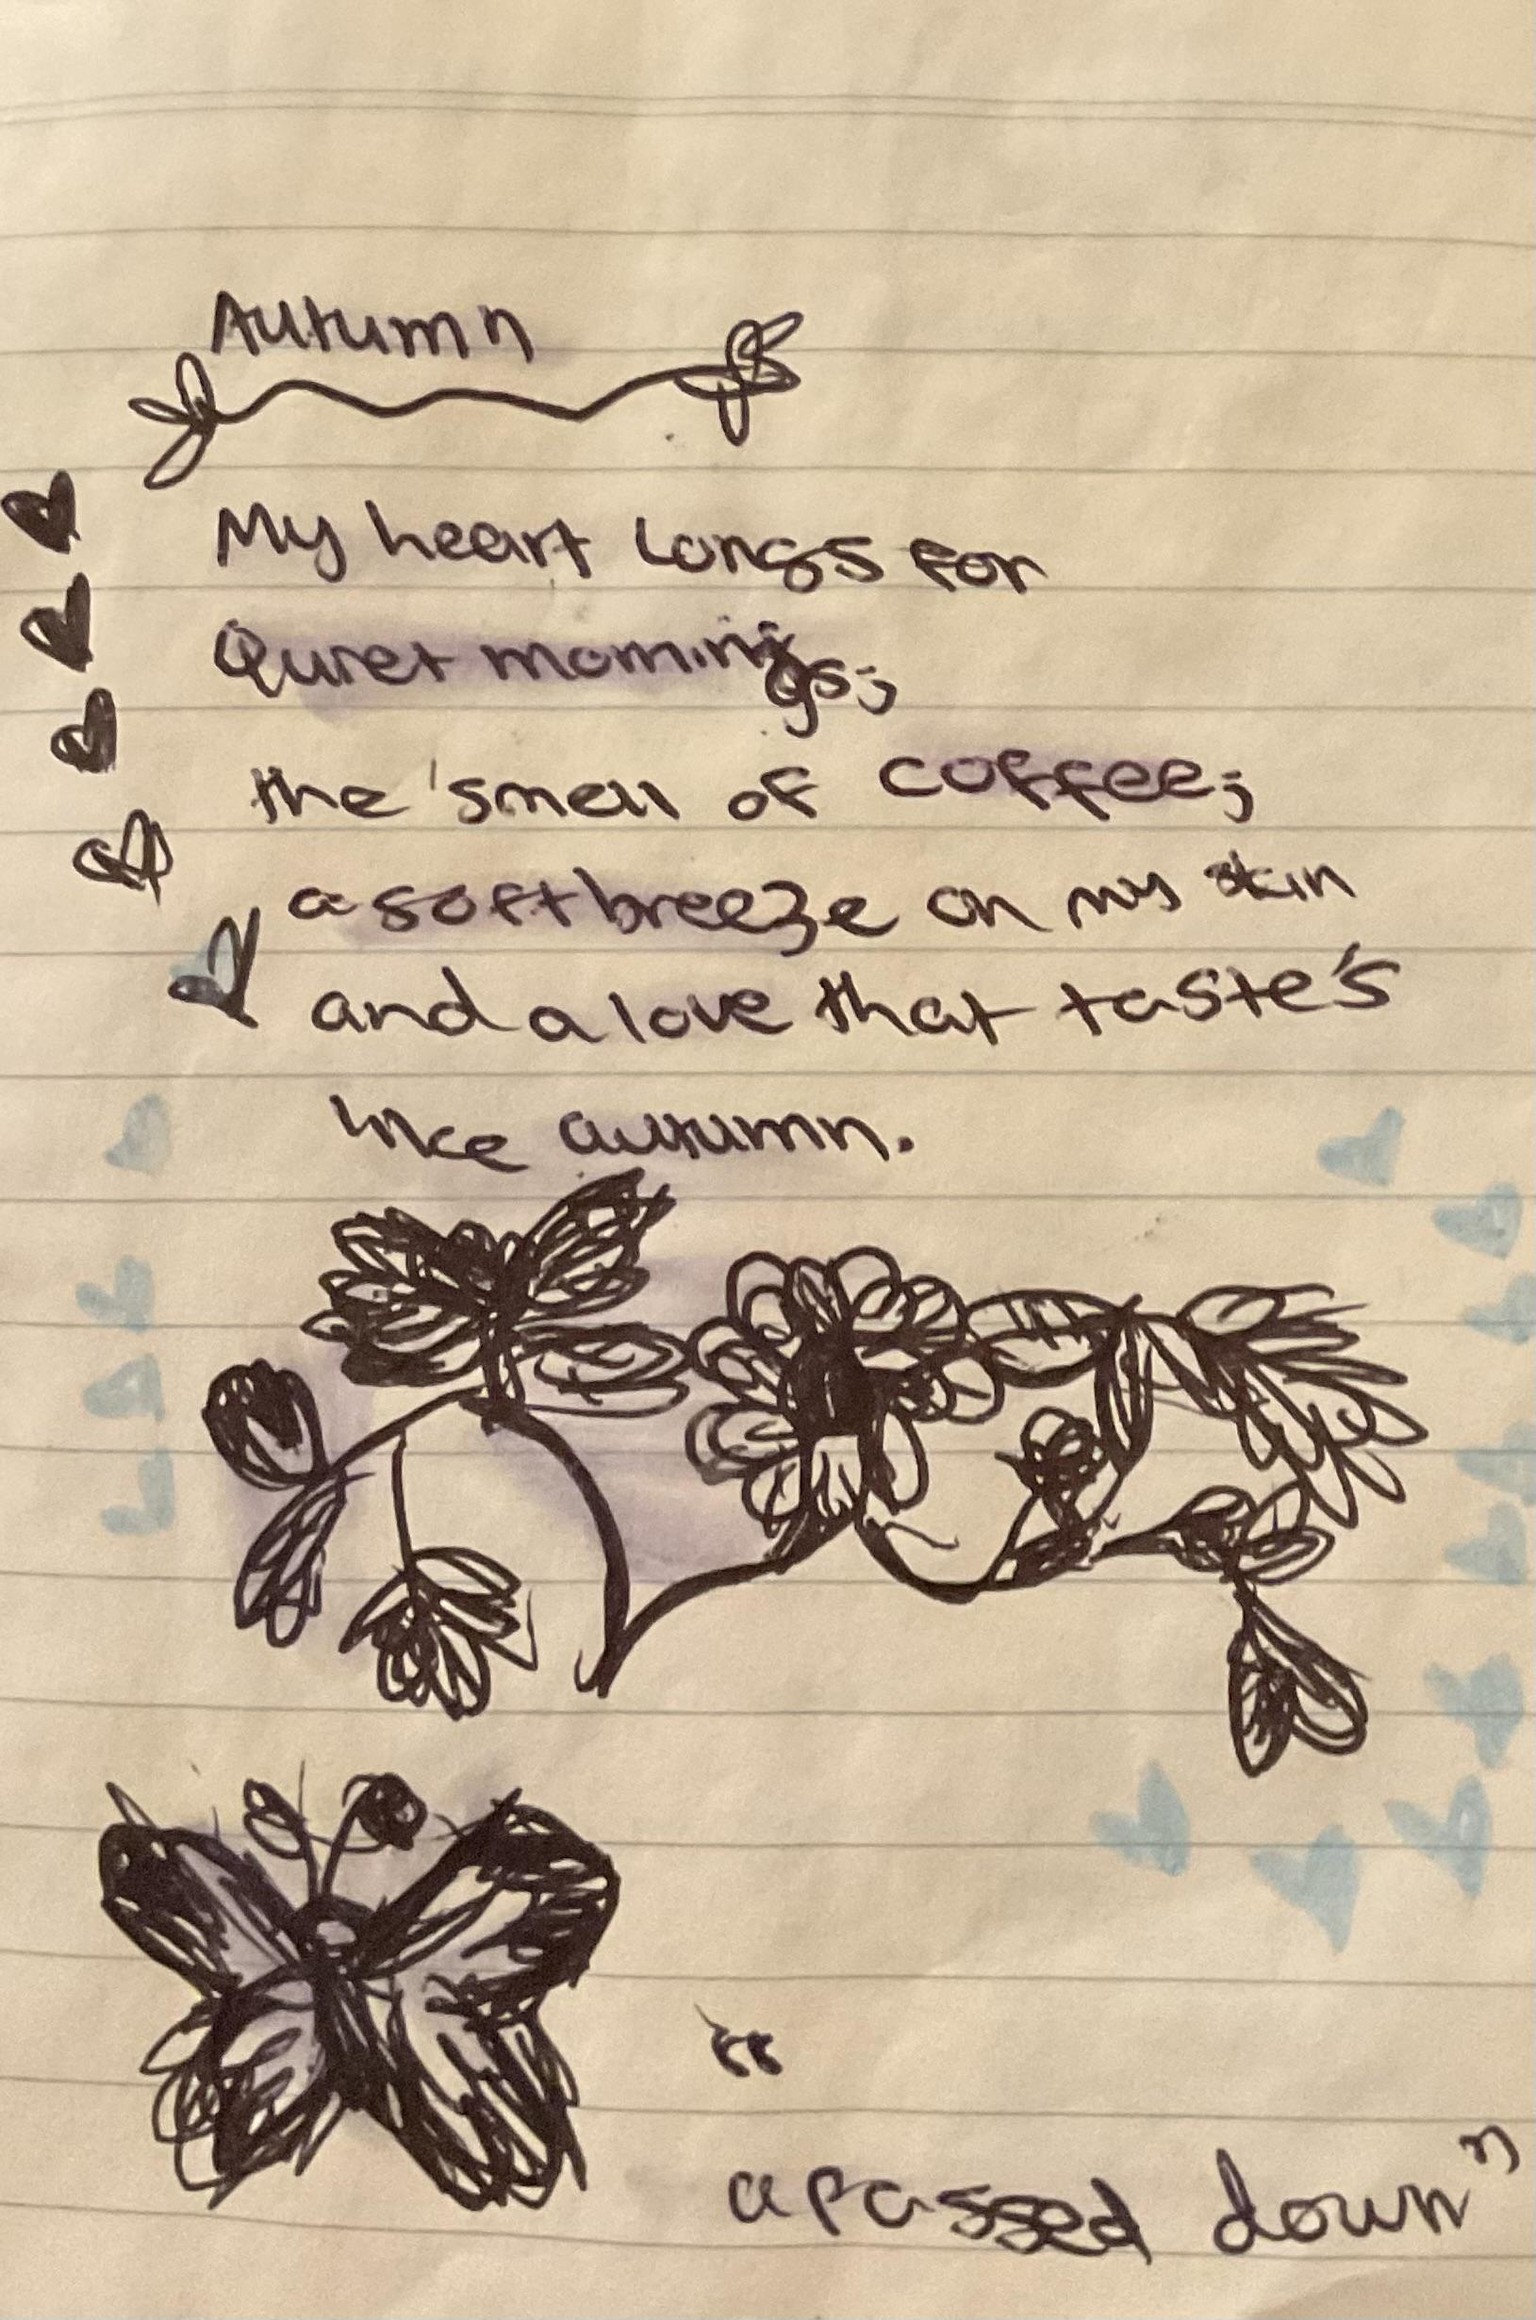 Autumn
My heart longs for
Quiet mornings;
the smell of coffee;
a soft breeze on my skin
and a love that taste's
like autumn.
"
a passed down"